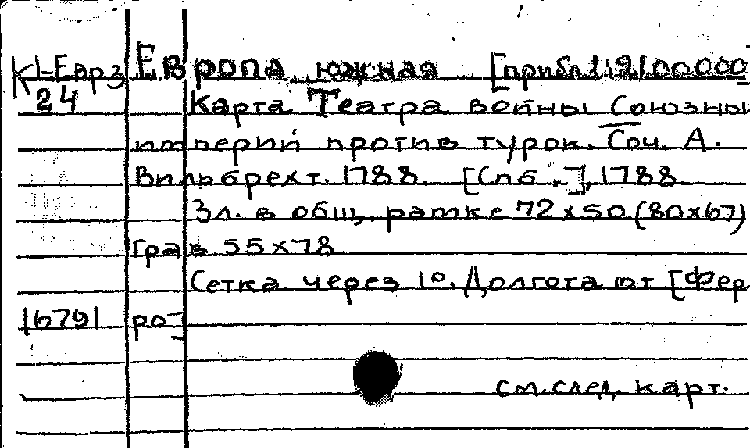 К 1-Евр 3 Европа южная [прибл. 1:9100000
24 Карта Театра войны Союзны
империй против турок. Соч. А.
Вильбрехт. 1788. [Спб.], 1788
3л. в общ. рамке 72х50 (80х67)
Грав 55х78
Сетка через 1°. Долгота от [Фер
16791 ро]
см. след. карт.